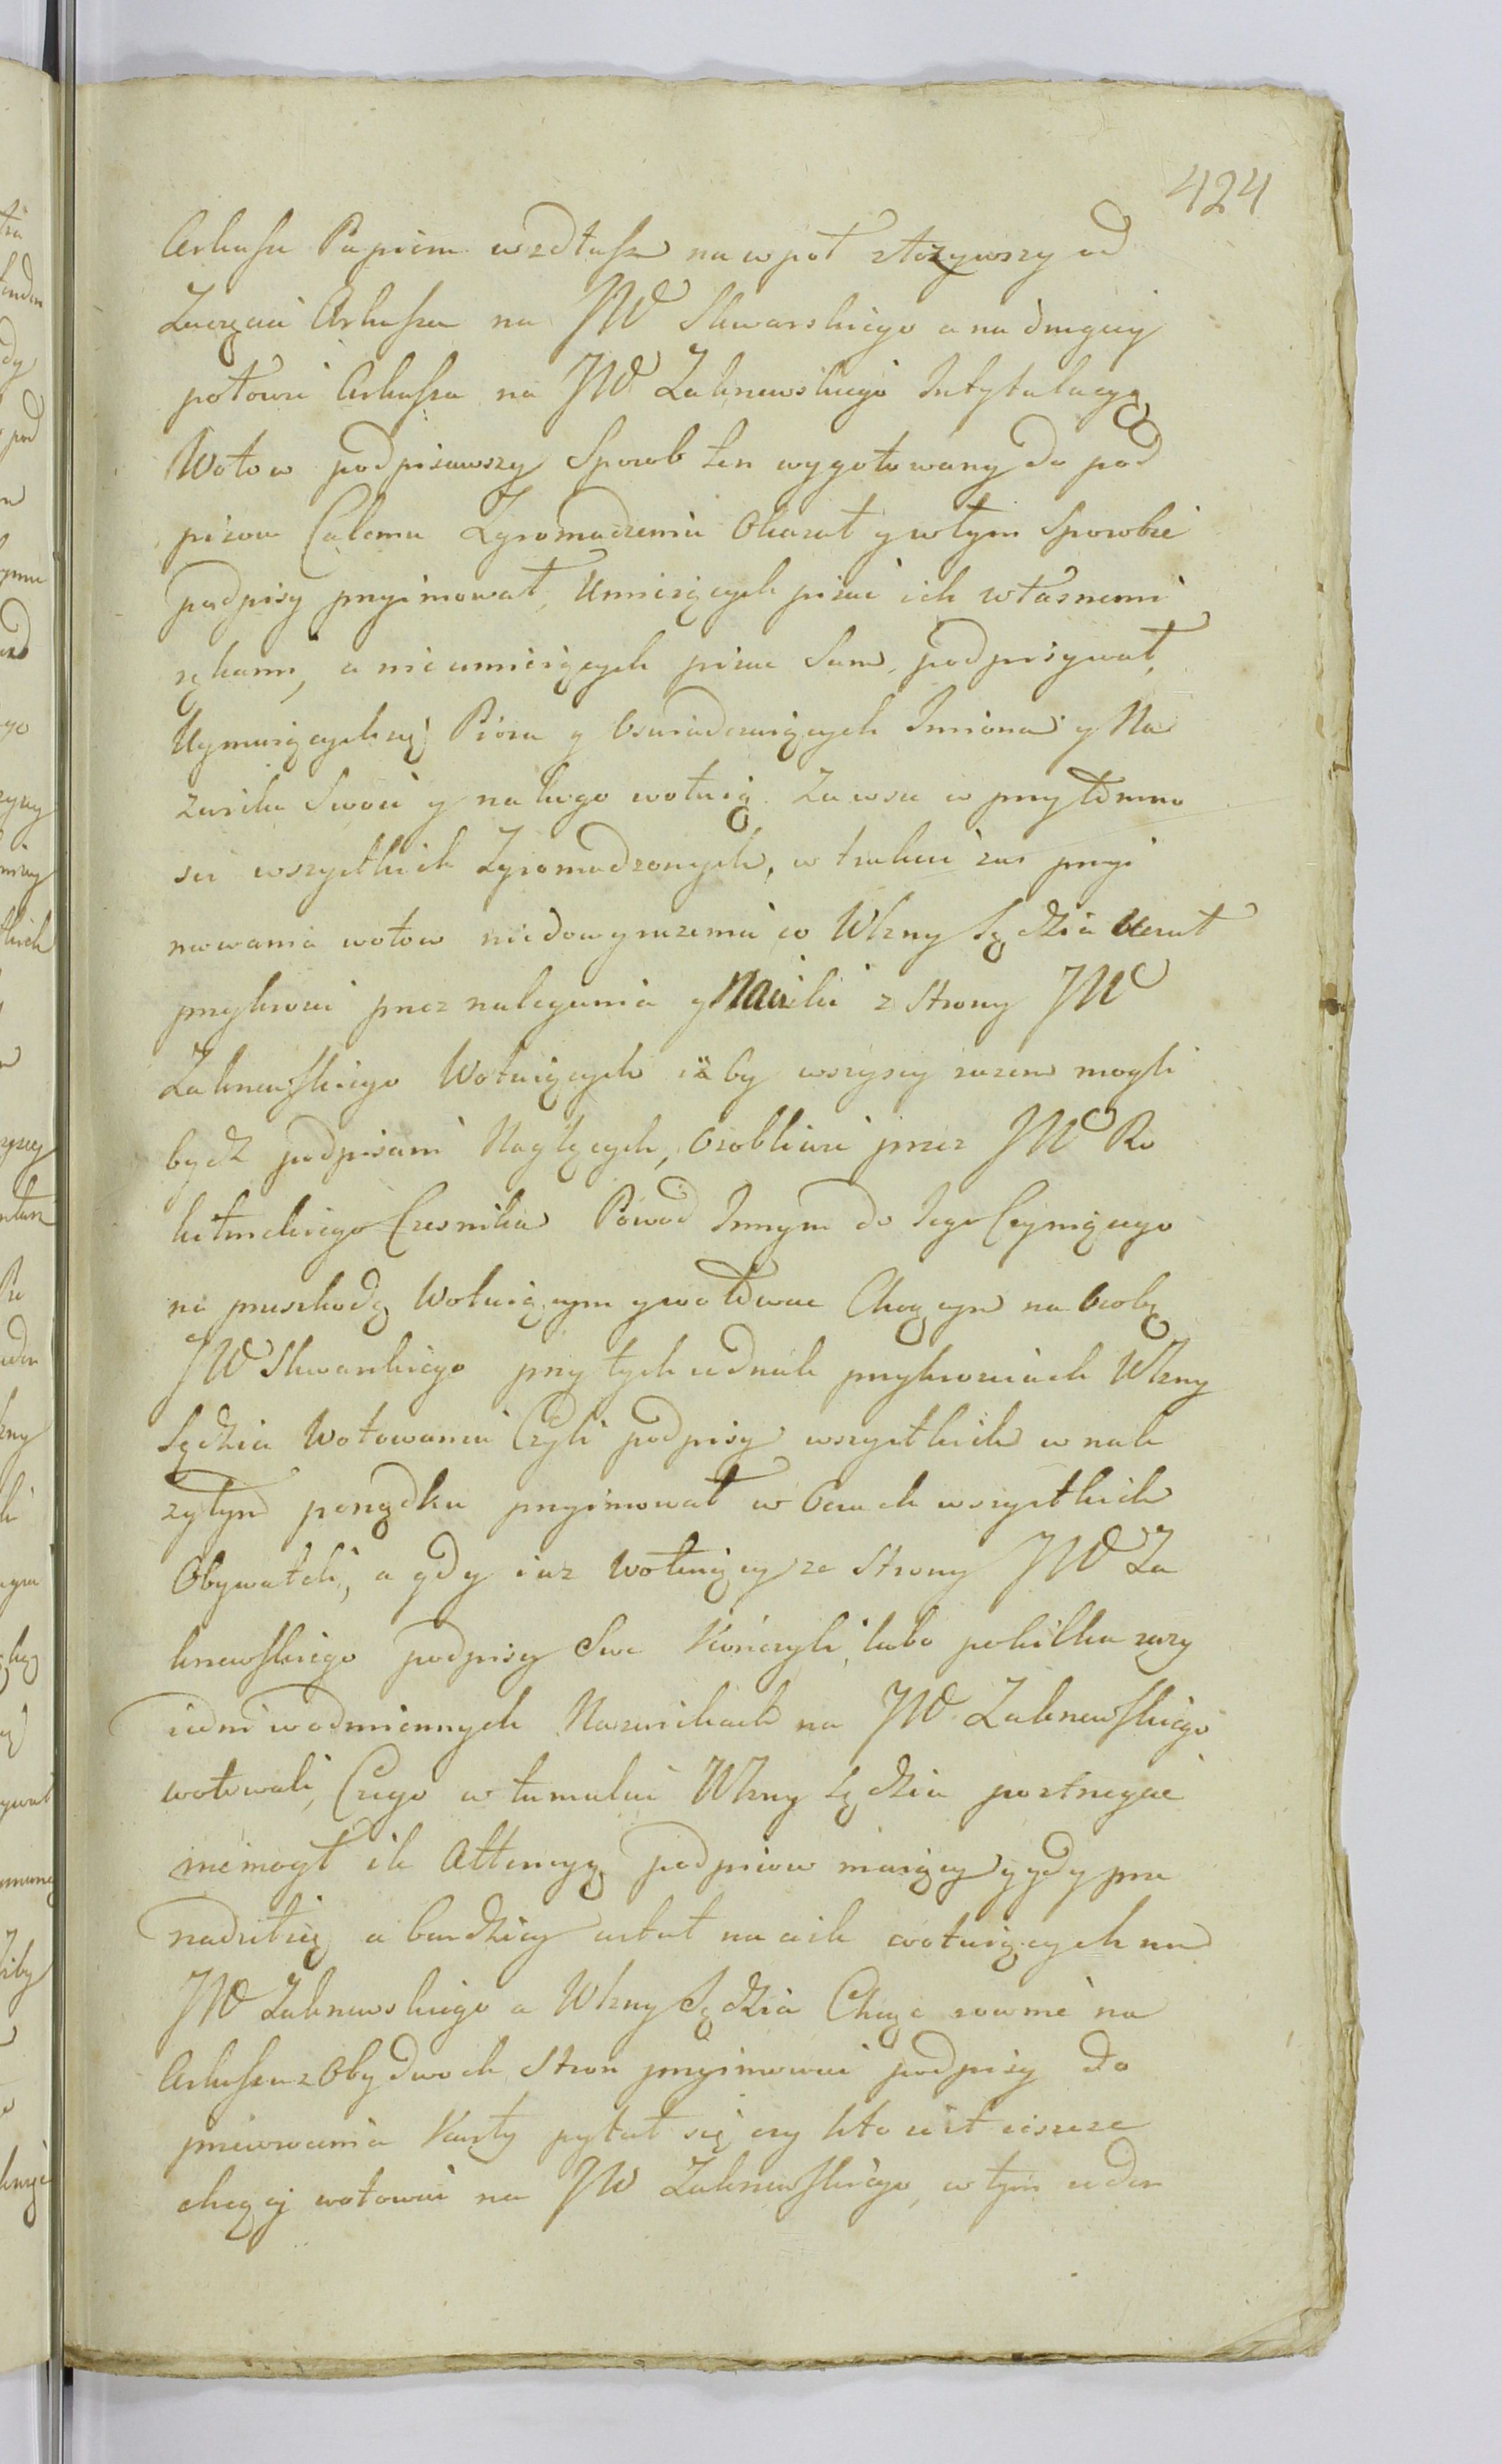 424
Arkusz Papieru wzdłusz na wpoł złozywszy od
Zaczęcia Arkusza na JW Skwarskiego a na drugiey
połowie Arkusza na JW Zakrzewskiego Intytulacyą
Wotow podpisawszy Sposob ten wygotowany do pod
pisow Całemu Zgromadzeniu Okazał y w tym Sposobie
podpisy przyimował, Umieiących pisać ich własnemi
rękami, a nieumieiących pisac Sam podpisywał,
Uymuiących się Pióra y Oswiadczaiących Imiona y Na
zwiska Swoie y na kogo wotuią. Zawsze w przytomno
sci wszystkich Zgromadzonych, w trakcie zas przyi
mowania wotow niedowyrażenia co Wlzny Sędzia Uczuł
przykrosci przez nalegania y Nacisk z Strony JW
Zakrzewskiego Wotuiących izby wszyscy razem mogli
bydz podpisani Naglących, Osobliwie przez JW Ro
kitnickiego Czesnika Powod Innym do tego Czyniącego
na przeszkodę Wotuiącym y wotowac Chcącym na Osobę
JW Skwarskiego przy tych iednak przykrosciach Wlzny
Sędzia Wotowania Czyli podpisy wszystkich w nale
zytym porządku przyimował w Oczach wszystkich
Obywateli, a gdy iuz wotuiący ze Strony JW Za
krzewskiego podpisy Swe Kończyli, lubo po kilka razy
iedni w odmiennych Nazwiskach na JW Zakrzewskiego
wotowali, Czego w tumulcie Wlzny Sędzia postrzegać
niemogł ile Attencyą podpisow maiący y gdy prze
rzadził się a bardziey ustał nacisk wotuiących na
JW Zakrzewskiego a Wlzny Sędzia Chcąc rownie na
Arkuszu z Obydwoch Stron przyimować podpisy do
przewrocenia Karty pytał się czy kto iest ieszcze
chcący wotować na JW Zakrzewskiego, w tym ieden